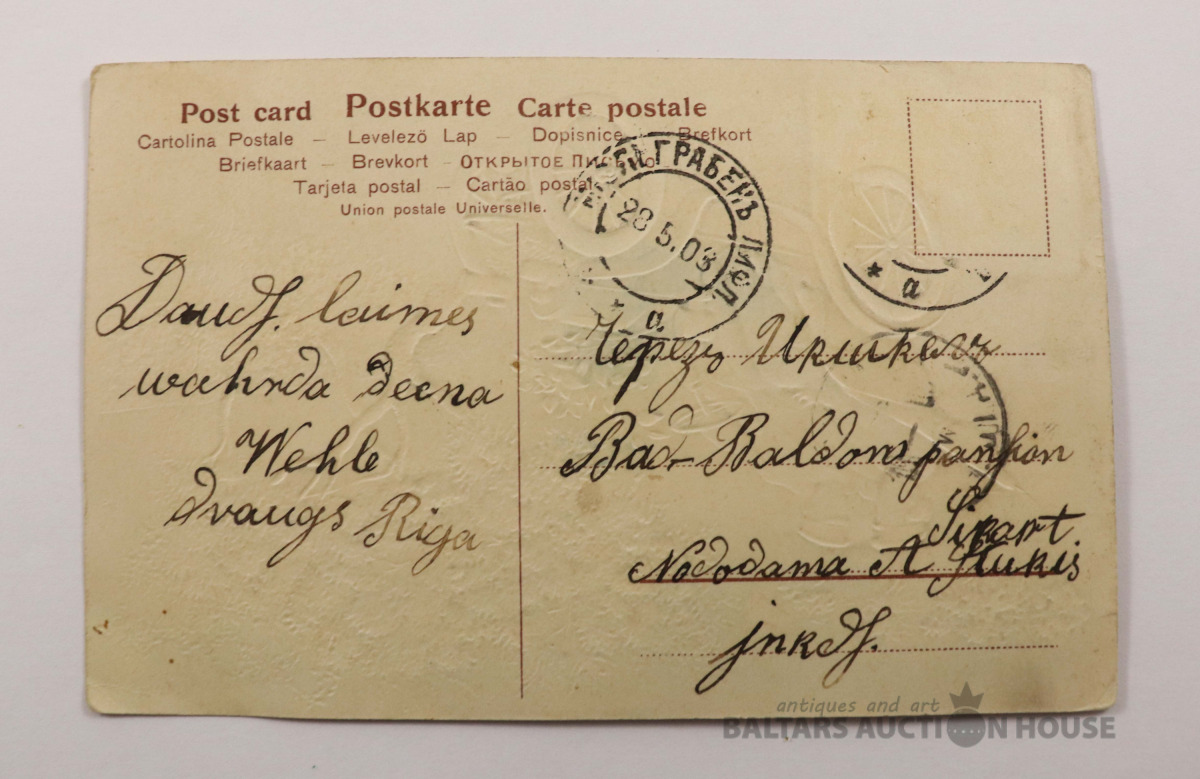 Post card Postkarte Carte postale
Cartolina Postale – Levelezö Lap – Dopisnice – Brefkort
Briefkaart – Brevkort – ОТКРЫТОЕ ПИСЬМО
Tarjeta postal – Cartão postal
Union postale Universelle.
ГРАБЕНЪ ЛИФЛ.
28 5.03
а
* а
Daudſ. laimes
wahrda deena
Wehle
draugs Riga
Черезъ Икшкель
Bad-Baldon panſion
Nododama A
jnkdſ.
antiques and art
BALTARS AUCTION HOUSE